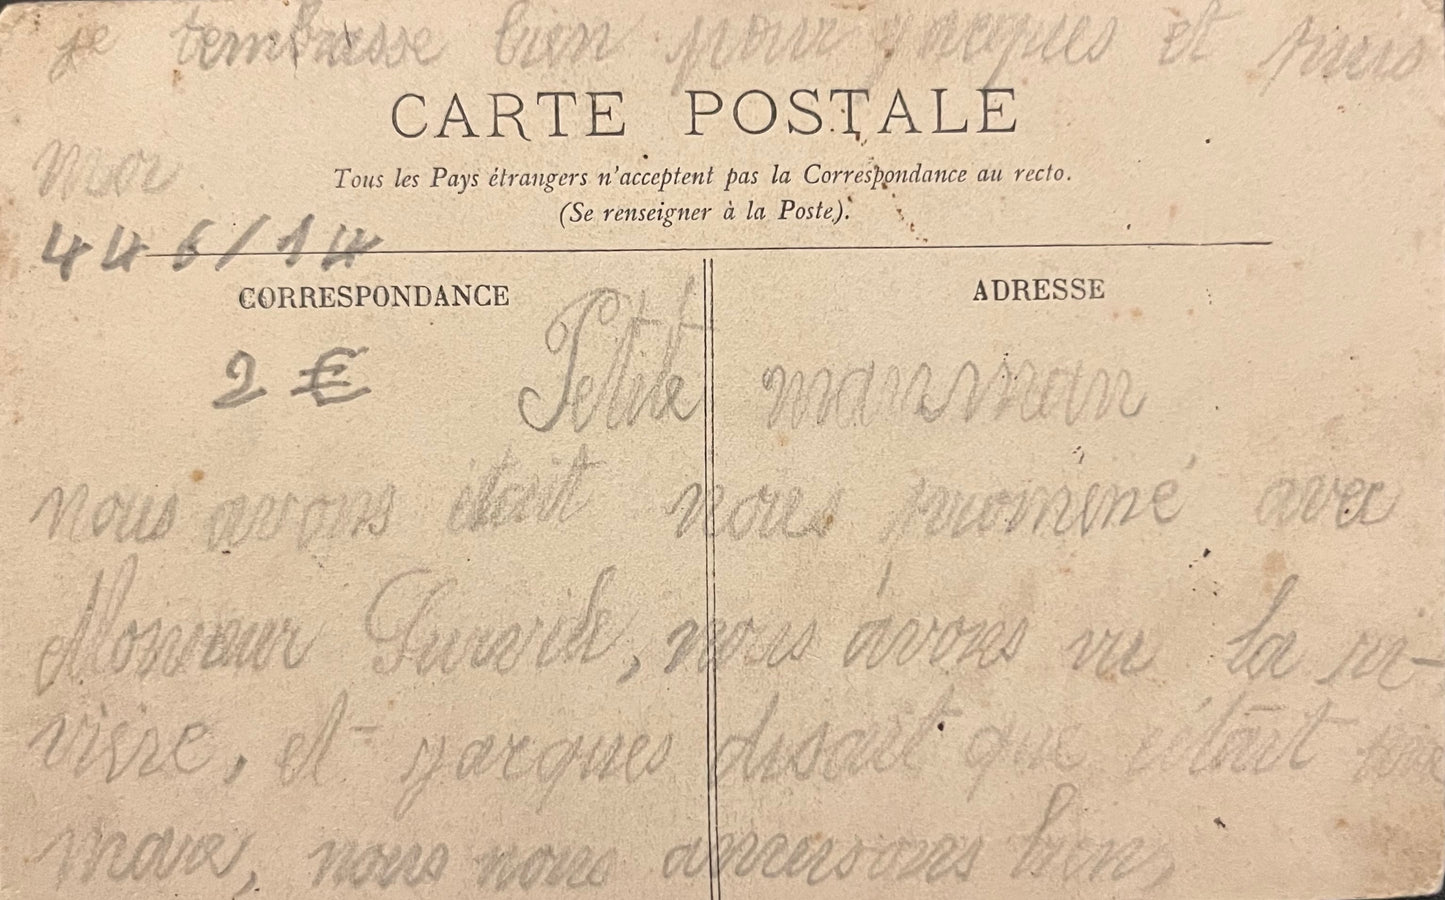 je tembrasse bien pour jacques et puis
moi.
CARTE POSTALE
Tous les Pays étrangers n'acceptent pas la Correspondance au recto.
(Se renseigner à la Poste).
446/14
CORRESPONDANCE
ADRESSE
2 €
Petite manman
nous avons était nous promené avec
Monsieur, nous avons vu la ri-
vière, et jacques disait que était une
mare, nous nous amusons bien,